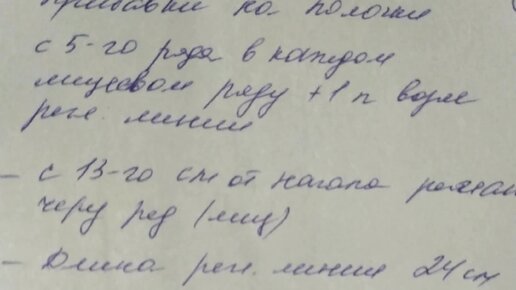 Прибавки на полочки
с 5-го ряда в каждом
лицевом ряду +1 п возле
регл. линии
- с 13-го см от начала реглан
через ряд (лиц)
- Длина регл. линии 24 см